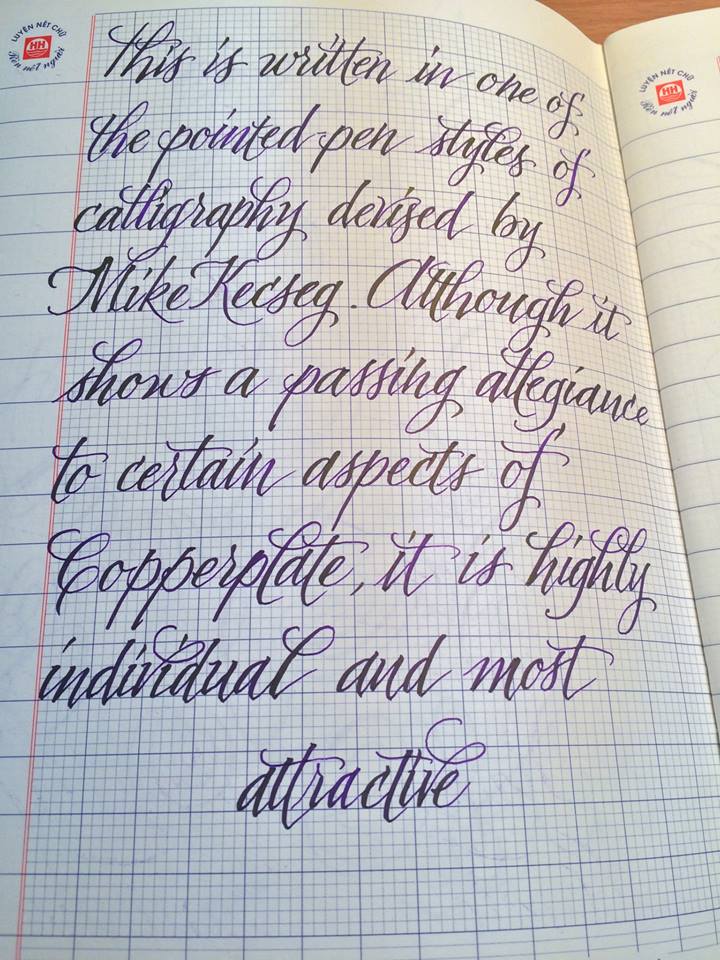 LUYỆN NÉT CHỮ
HH
Rèn nết người
This is written in one of
the pointed pen styles of
calligraphy devised by
Mike Kecseg. Although it
shows a passing allegiance
to certain aspects of
Copperplate, it is highly
individual and most
attractive
LUYỆN NÉT CHỮ
HH
Rèn nết người